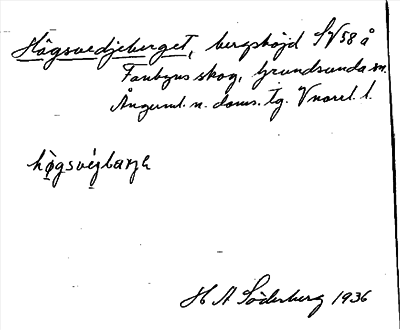 Högsvedjeberget, bergshöjd SV 58 å
Fanbyns skog, Grundsunda sn.
Ångerml. n. doms. tg. Vnorrl. l.
högsvejbarje
H A Söderberg 1936